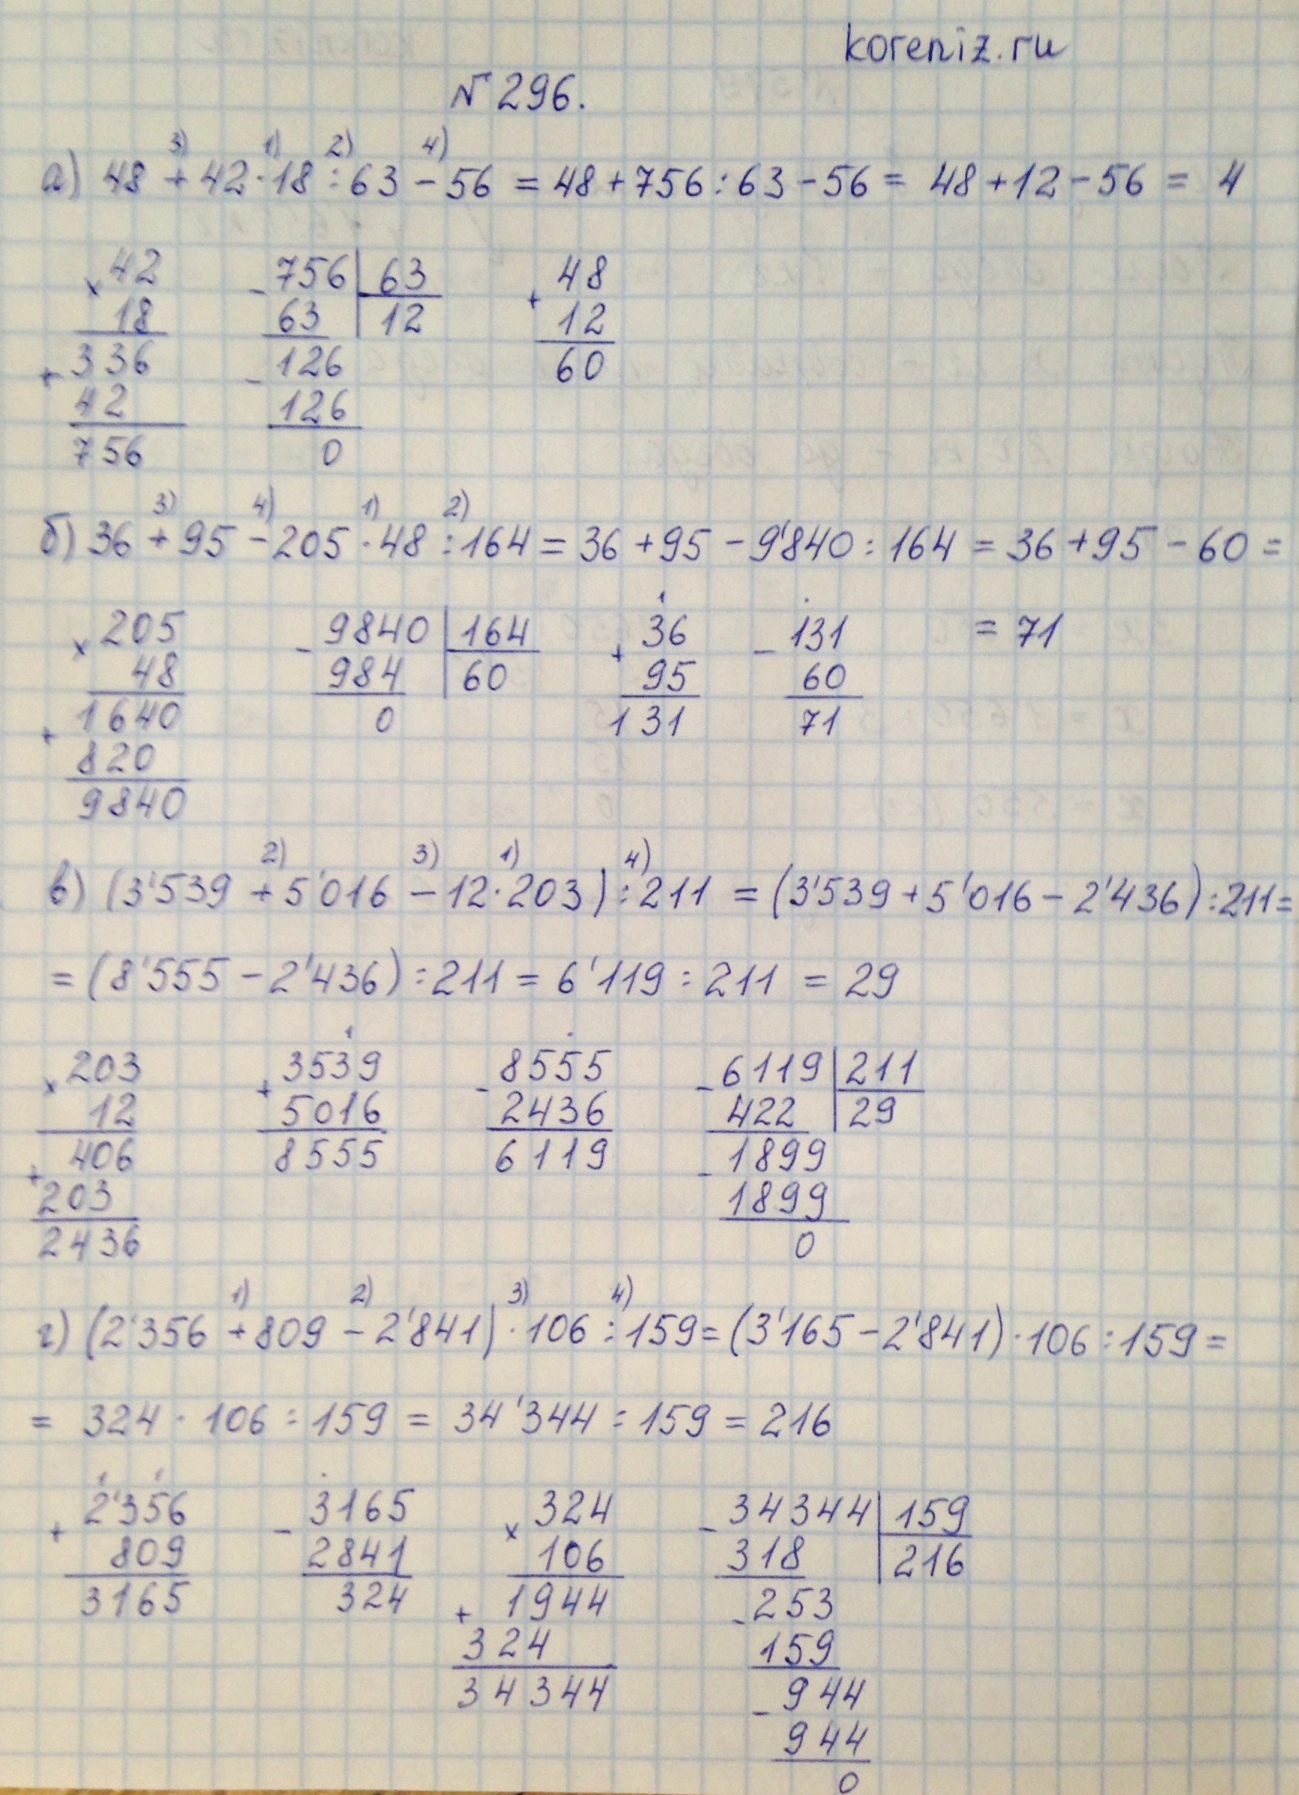 koreniz.ru
№ 296.
3) 1) 2) 4)
а) 48 + 42 · 18 : 63 - 56 = 48 + 756 : 63 - 56 = 48 + 12 - 56 = 4
× 42
18
+ 336
42
756
- 756 | 63
63 | 12
- 126
126
0
+ 48
12
60
3) 4) 1) 2)
б) 36 + 95 - 205 · 48 : 164 = 36 + 95 - 9'840 : 164 = 36 + 95 - 60 =
= 71
× 205
48
+ 1640
820
9840
- 9840 | 164
984 | 60
0
1
+ 36
95
131
- 131
60
71
2) 3) 1) 4)
в) (3'539 + 5'016 - 12 · 203) : 211 = (3'539 + 5'016 - 2'436) : 211 =
= (8'555 - 2'436) : 211 = 6'119 : 211 = 29
× 203
12
+ 406
203
2436
1
+ 3539
5016
8555
- 8555
2436
6119
- 6119 | 211
422 | 29
- 1899
1899
0
1) 2) 3) 4)
г) (2'356 + 809 - 2'841) · 106 : 159 = (3'165 - 2'841) · 106 : 159 =
= 324 · 106 : 159 = 34'344 : 159 = 216
1 1
+ 2'356
809
3165
- 3165
2841
324
× 324
106
+ 1944
324
34344
- 34344 | 159
318 | 216
- 253
159
- 944
944
0